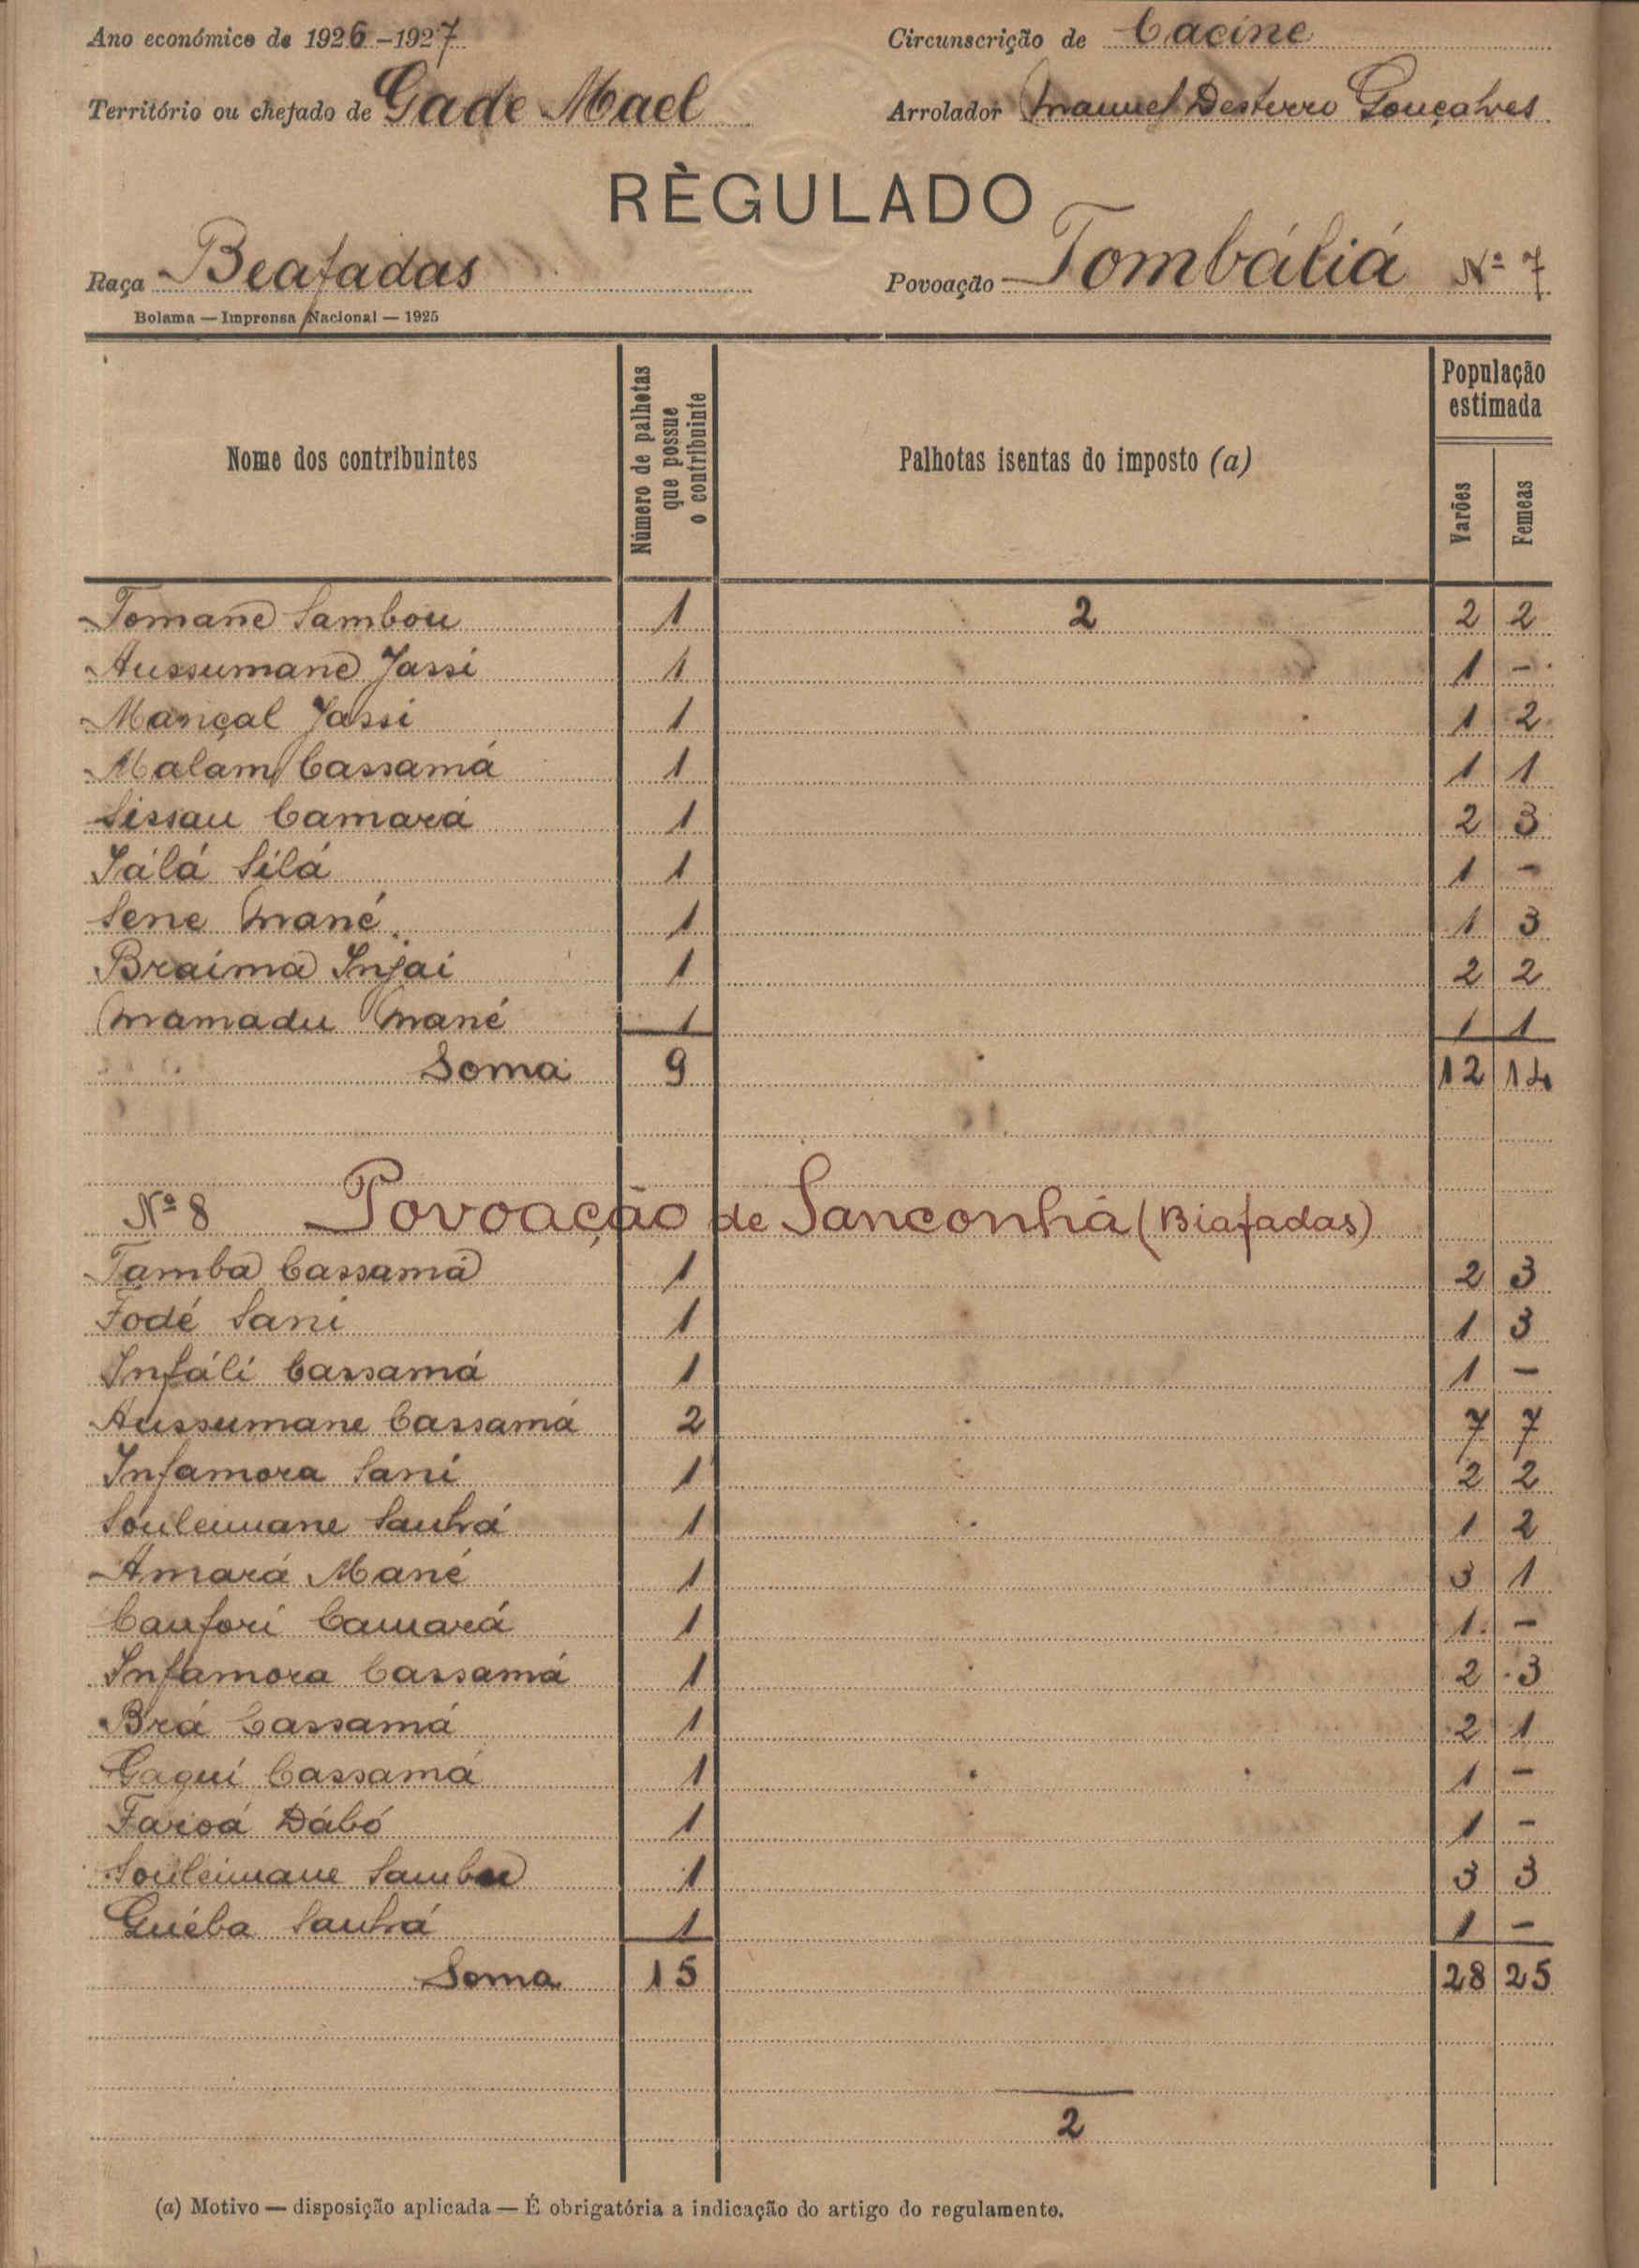 Ano económico de 1926-1927
Circunscrição de Cacine
Território ou chefado de Gade Mael
Arrolador Manuel Desterro Gonçalves
RÈGULADO
Raça Beafadas
Povoação Tombáliá Nº 7
Bolama — Imprensa Nacional — 1925
Nome dos contribuintes
Número de palhotas
que possue
o contribuinte
Palhotas isentas do imposto (a)
População
estimada
Varões
Femeas
Tomane Sambou 1 2 2 2
Aussumane Jassi 1 1 -
Mançal Jassi 1 1 2
Malam Cassamá 1 1 1
Sissau Camará 1 2 3
Jálá Silá 1 1 -
Sene Mané 1 1 3
Braima Injai 1 2 2
Mamadu Mané 1 1 1
Soma 9 12 14
Nº 8 Povoação de Sanconhá (Biafadas)
Tamba Cassamá 1 2 3
Fodé Sani 1 1 3
Infáli Cassamá 1 1 -
Aussumane Cassamá 2 7 7
Infamora Sani 1 2 2
Souleimane Sanhá 1 1 2
Amará Mané 1 3 1
Canfori Camará 1 1 -
Infamora Cassamá 1 2 3
Brá Cassamá 1 2 1
Gagui Cassamá 1 1 -
Faroá Dábó 1 1 -
Souleimane Sambu 1 3 3
Guéba Sanhá 1 1 -
Soma 15 28 25
2
(a) Motivo — disposição aplicada — É obrigatória a indicação do artigo do regulamento.